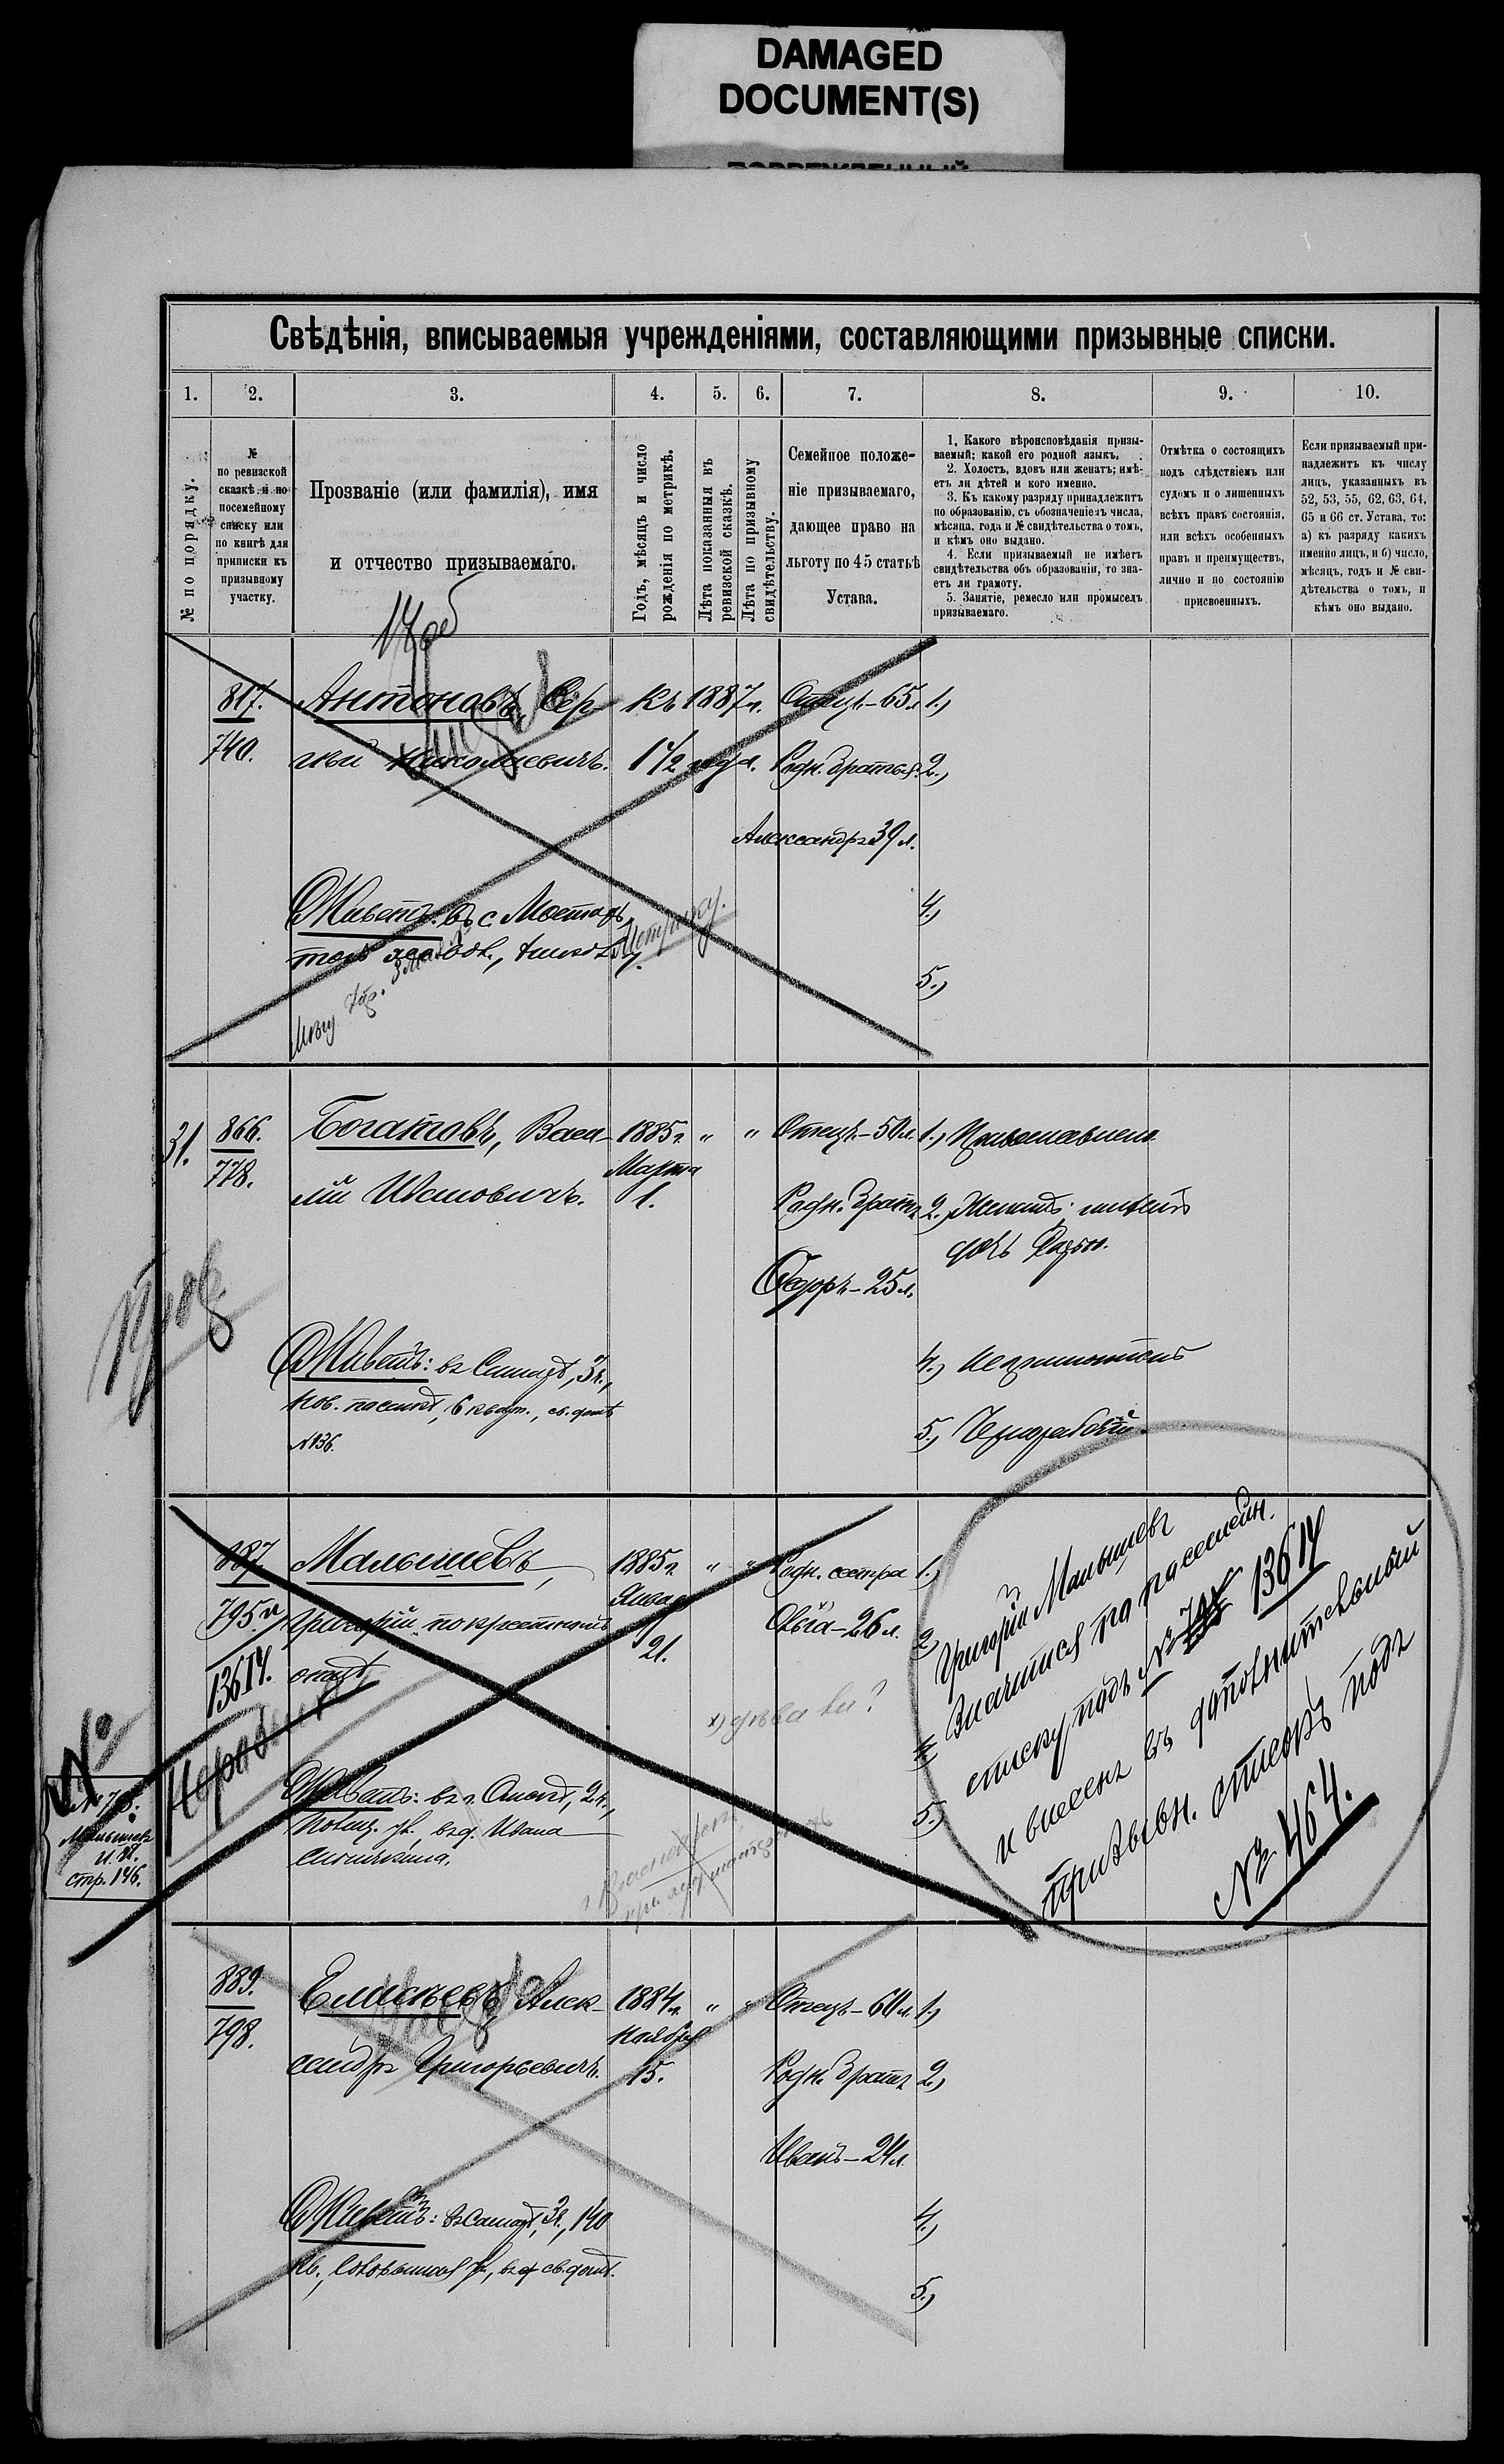 DAMAGED
DOCUMENT(S)
Свѣдѣнія, вписываемыя учрежденіями, составляющими призывные списки.
1. 2. 3. 4. 5. 6. 7. 8. 9. 10.
№ по порядку.
№
по ревизской
сказкѣ и по
посемейному
списку или
по книгѣ для
приписки къ
призывному
участку.
Прозваніе (или фамилія), имя
и отчество призываемаго.
Годъ, мѣсяцъ и число
рожденія по метрикѣ.
Лѣта показанныя въ
ревизской сказкѣ.
Лѣта по призывному
свидѣтельству.
Семейное положе-
ніе призываемаго,
дающее право на
льготу по 45 статьѣ
Устава.
1. Какого вѣроисповѣданія призы-
ваемый; какой его родной языкъ.
2. Холостъ, вдовъ или женатъ; имѣ-
етъ ли дѣтей и кого именно.
3. Къ какому разряду принадлежитъ
по образованію, съ обозначеніемъ числа,
мѣсяца, года и № свидѣтельства о томъ,
и кѣмъ оно выдано.
4. Если призываемый не имѣетъ
свидѣтельства объ образованіи, то зна-
етъ ли грамоту.
5. Занятіе, ремесло или промыселъ
призываемаго.
Отмѣтка о состоящихъ
подъ слѣдствіемъ или
судомъ и о лишенныхъ
всѣхъ правъ состоянія,
или всѣхъ особенныхъ
правъ и преимуществъ,
лично и по состоянію
присвоенныхъ.
Если призываемый при-
надлежитъ къ числу
лицъ, указанныхъ въ
52, 53, 55, 62, 63, 64,
65 и 66 ст. Устава, то:
а) къ разряду какихъ
именно лицъ, и б) число,
мѣсяцъ, годъ и № сви-
дѣтельства о томъ, и
кѣмъ оно выдано.
817. Антоновъ, Сер- Къ 1887 г. Отецъ-65 л. 1.)
740. гѣй Николаевичъ. 1½ года. Родн. братья 2.)
Александръ 39 л.
Живетъ: въ с.
4.)
метрику.
5.)
31. 866. Богатовъ, Васи- 1885 г. " " Отецъ-50 л. 1.) Православнаго
778. лій Ивановичъ. Марта 1. Родн. братъ 2.) Женатъ; имѣетъ
дочь Дарью.
Федоръ-25 л.
Живетъ: въ Самарѣ, 3 ч., 4.) Неграмотенъ
№136. 5.) Чернорабочій.
887 Малышевъ, 1885 г. " " Родн. сестра 1.)
795 Григорій по крестному Января 21. Ольга-26 л. 2.)
13614. отцу
4.)
Живетъ: въ г. 2 ч.,
въ д. Ивана
5.)
Григорій Малышевъ
Значится по посемейн.
списку подъ № 795 13614
и внесенъ въ дополнительный
призывн. списокъ подъ
№ 464.
№
Малышевъ
стр. 146.
889. Елисѣевъ, Алек- 1884 г. " " Отецъ-60 л. 1.)
798. сандръ Григорьевичъ. Ноября 15. Родн. братъ 2.)
Иванъ-24 л.
Живетъ: въ Самарѣ, 3 ч., 140 4.)
кв., въ д. св. домѣ.
5.)